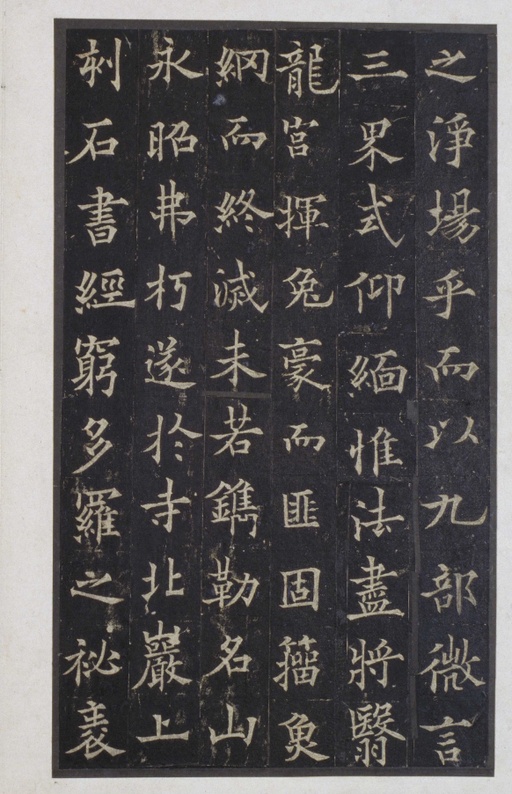 之淨場乎而以九部微言
三界式仰緬惟法盡將翳
龍宮揮兔豪而匪固籀臮
網而終滅未若鐫勒名山
永昭弗朽遂於寺北巖上
刺石書經窮多羅之祕袠